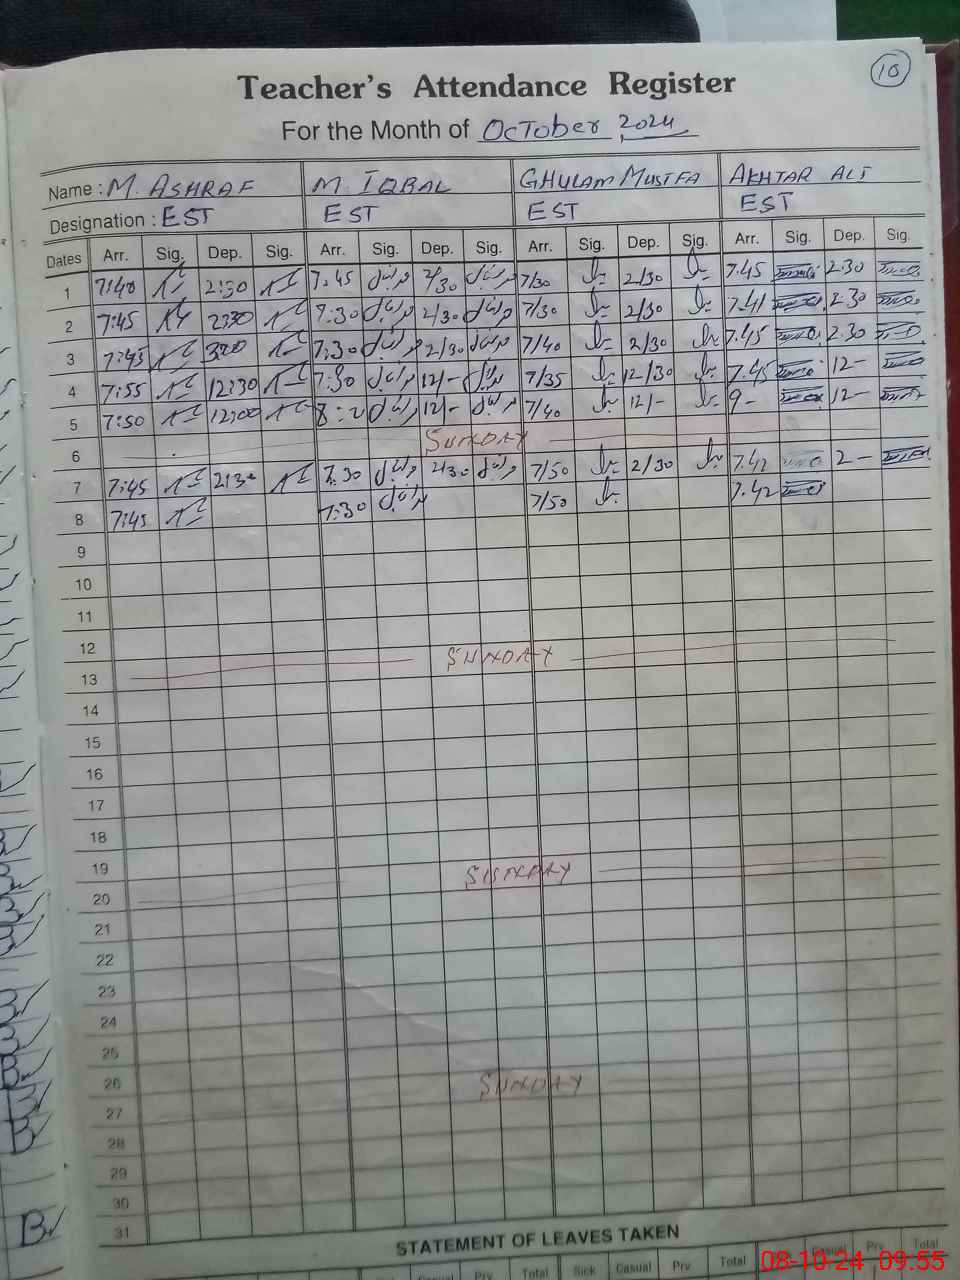 10
Teacher's Attendance Register
For the Month of October 2024
Name : M. ASHRAF M. IQBAL GHULAM MUSTFA AKHTAR ALI
Designation : EST EST EST EST
Dates Arr. Sig. Dep. Sig. Arr. Sig. Dep. Sig. Arr. Sig. Dep. Sig. Arr. Sig. Dep. Sig.
1 7:40 2:30 7:45 2/30 7/30 2/30 7.45 2.30
2 7:45 2:30 7:30 2/30 7/30 2/30 7.41 2.30
3 7:45 7:30 2/30 7/40 2/30 7.45 2.30
4 7:55 12:30 7:30 12/- 7/35 12/30 7.45 12-
5 7:50 12:00 12/- 7/40 12/- 9- 12-
6 SUNDAY
7 7:45 2:30 7:30 2/30 7/50 2/30 7.42 2-
8 7:45 7:30 7/50 7.42
9
10
11
12
13 SUNDAY
14
15
16
17
18
19
20 SUNDAY
21
22
23
24
25
26
27 SUNDAY
28
29
30
31
STATEMENT OF LEAVES TAKEN
Casual Prv Total Sick Casual Prv. Total Casual Prv. Total
08-10-24 09:55